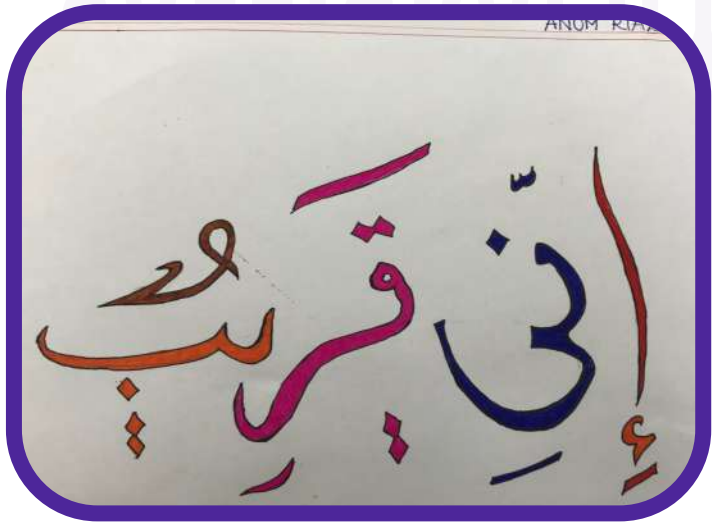 ANUM RIAZ
إِنِّى قَرِيبٌ